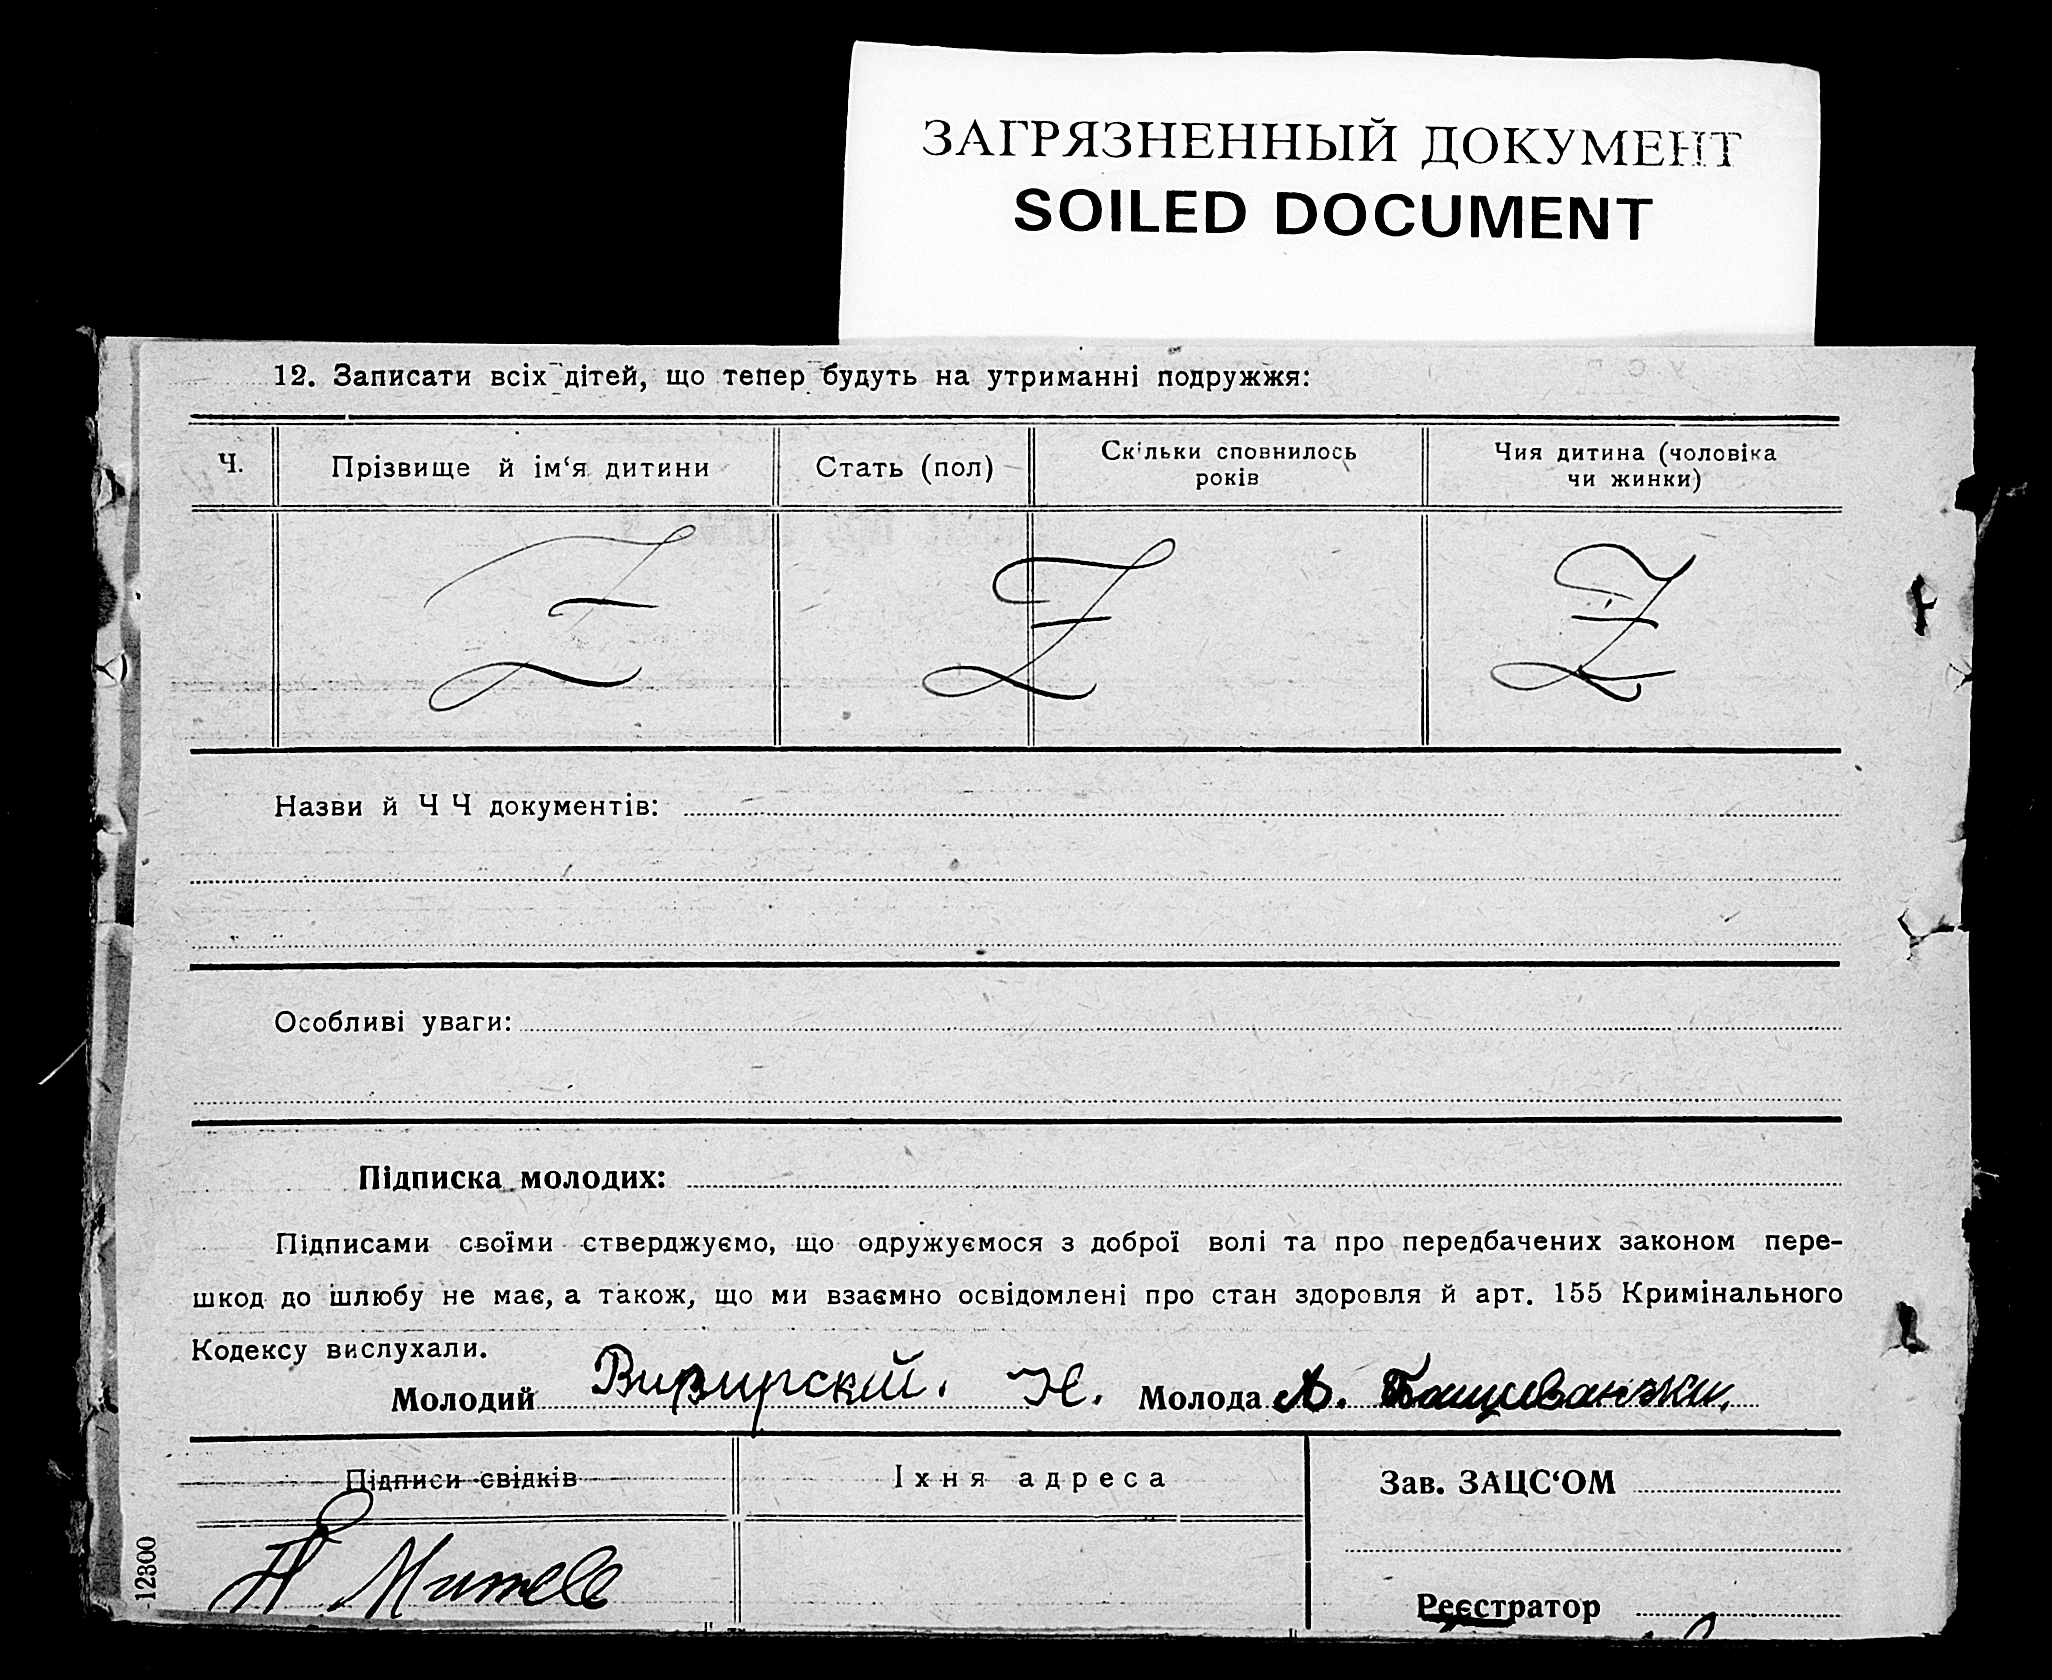 ЗАГРЯЗНЕННЫЙ ДОКУМЕНТ
SOILED DOCUMENT
12. Записати всіх дітей, що тепер будуть на утриманні подружжя:
Ч.
Прізвище й ім‘я дитини
Стать (пол)
Скільки сповнилось
років
Чия дитина (чоловіка
чи жинки)
Z Z Z
Назви й Ч Ч документів:
Особливі уваги:
Підписка молодих:
Підписами своїми стверджуємо, що одружуємося з доброї волі та про передбачених законом пере-
шкод до шлюбу не має, а також, що ми взаємно освідомлені про стан здоровля й арт. 155 Кримінального
Кодексу вислухали.
Молодий Визирский. Н. Молода А.
Підписи свідків
Іхня адреса
Зав. ЗАЦС‘ОМ
Митев
Реєстратор
12300